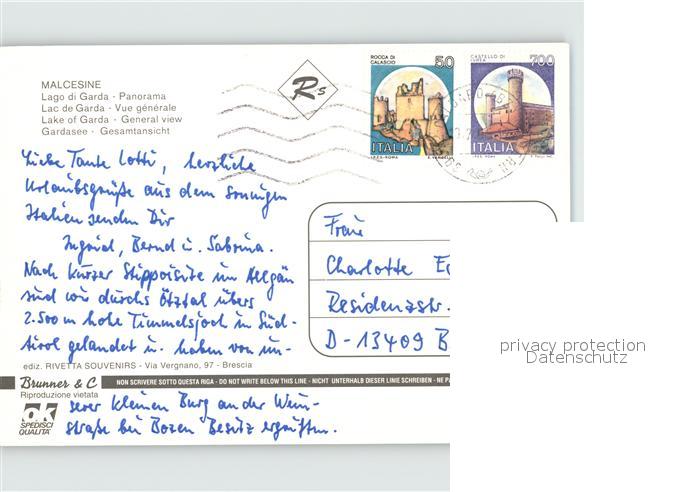 MALCESINE
Lago di Garda - Panorama
Lac de Garda - Vue générale
Lake of Garda - General view
Gardasee - Gesamtansicht
Rs
ROCCA DI CALASCIO
50
ITALIA
I.P.Z.S.-ROMA
CASTELLO DI IVREA
700
ITALIA
I.P.Z.S. ROMA
Liebe Tante Lotti, herzliche
Urlaubsgrüße aus dem sonnigen
Italien senden Dir
Ingrid, Bernd u. Sabrina.
Nach kurzer Stippvisite im Allgäu
sind wir durchs Ötztal übers
2.500 m hohe Timmelsjoch in Süd-
tirol gelandet u. haben von un-
Frau
Charlotte
Residenzstr.
D-13409 B
ediz. RIVETTA SOUVENIRS - Via Vergnano, 97 - Brescia
Brunner & C
Riproduzione vietata
NON SCRIVERE SOTTO QUESTA RIGA - DO NOT WRITE BELOW THIS LINE - NICHT UNTERHALB DIESER LINIE SCHREIBEN - NE PA
ok
SPEDISCI
QUALITA'
serer kleinen Burg an der Wein-
straße bei Bozen Besitz ergriffen.
privacy protection
Datenschutz